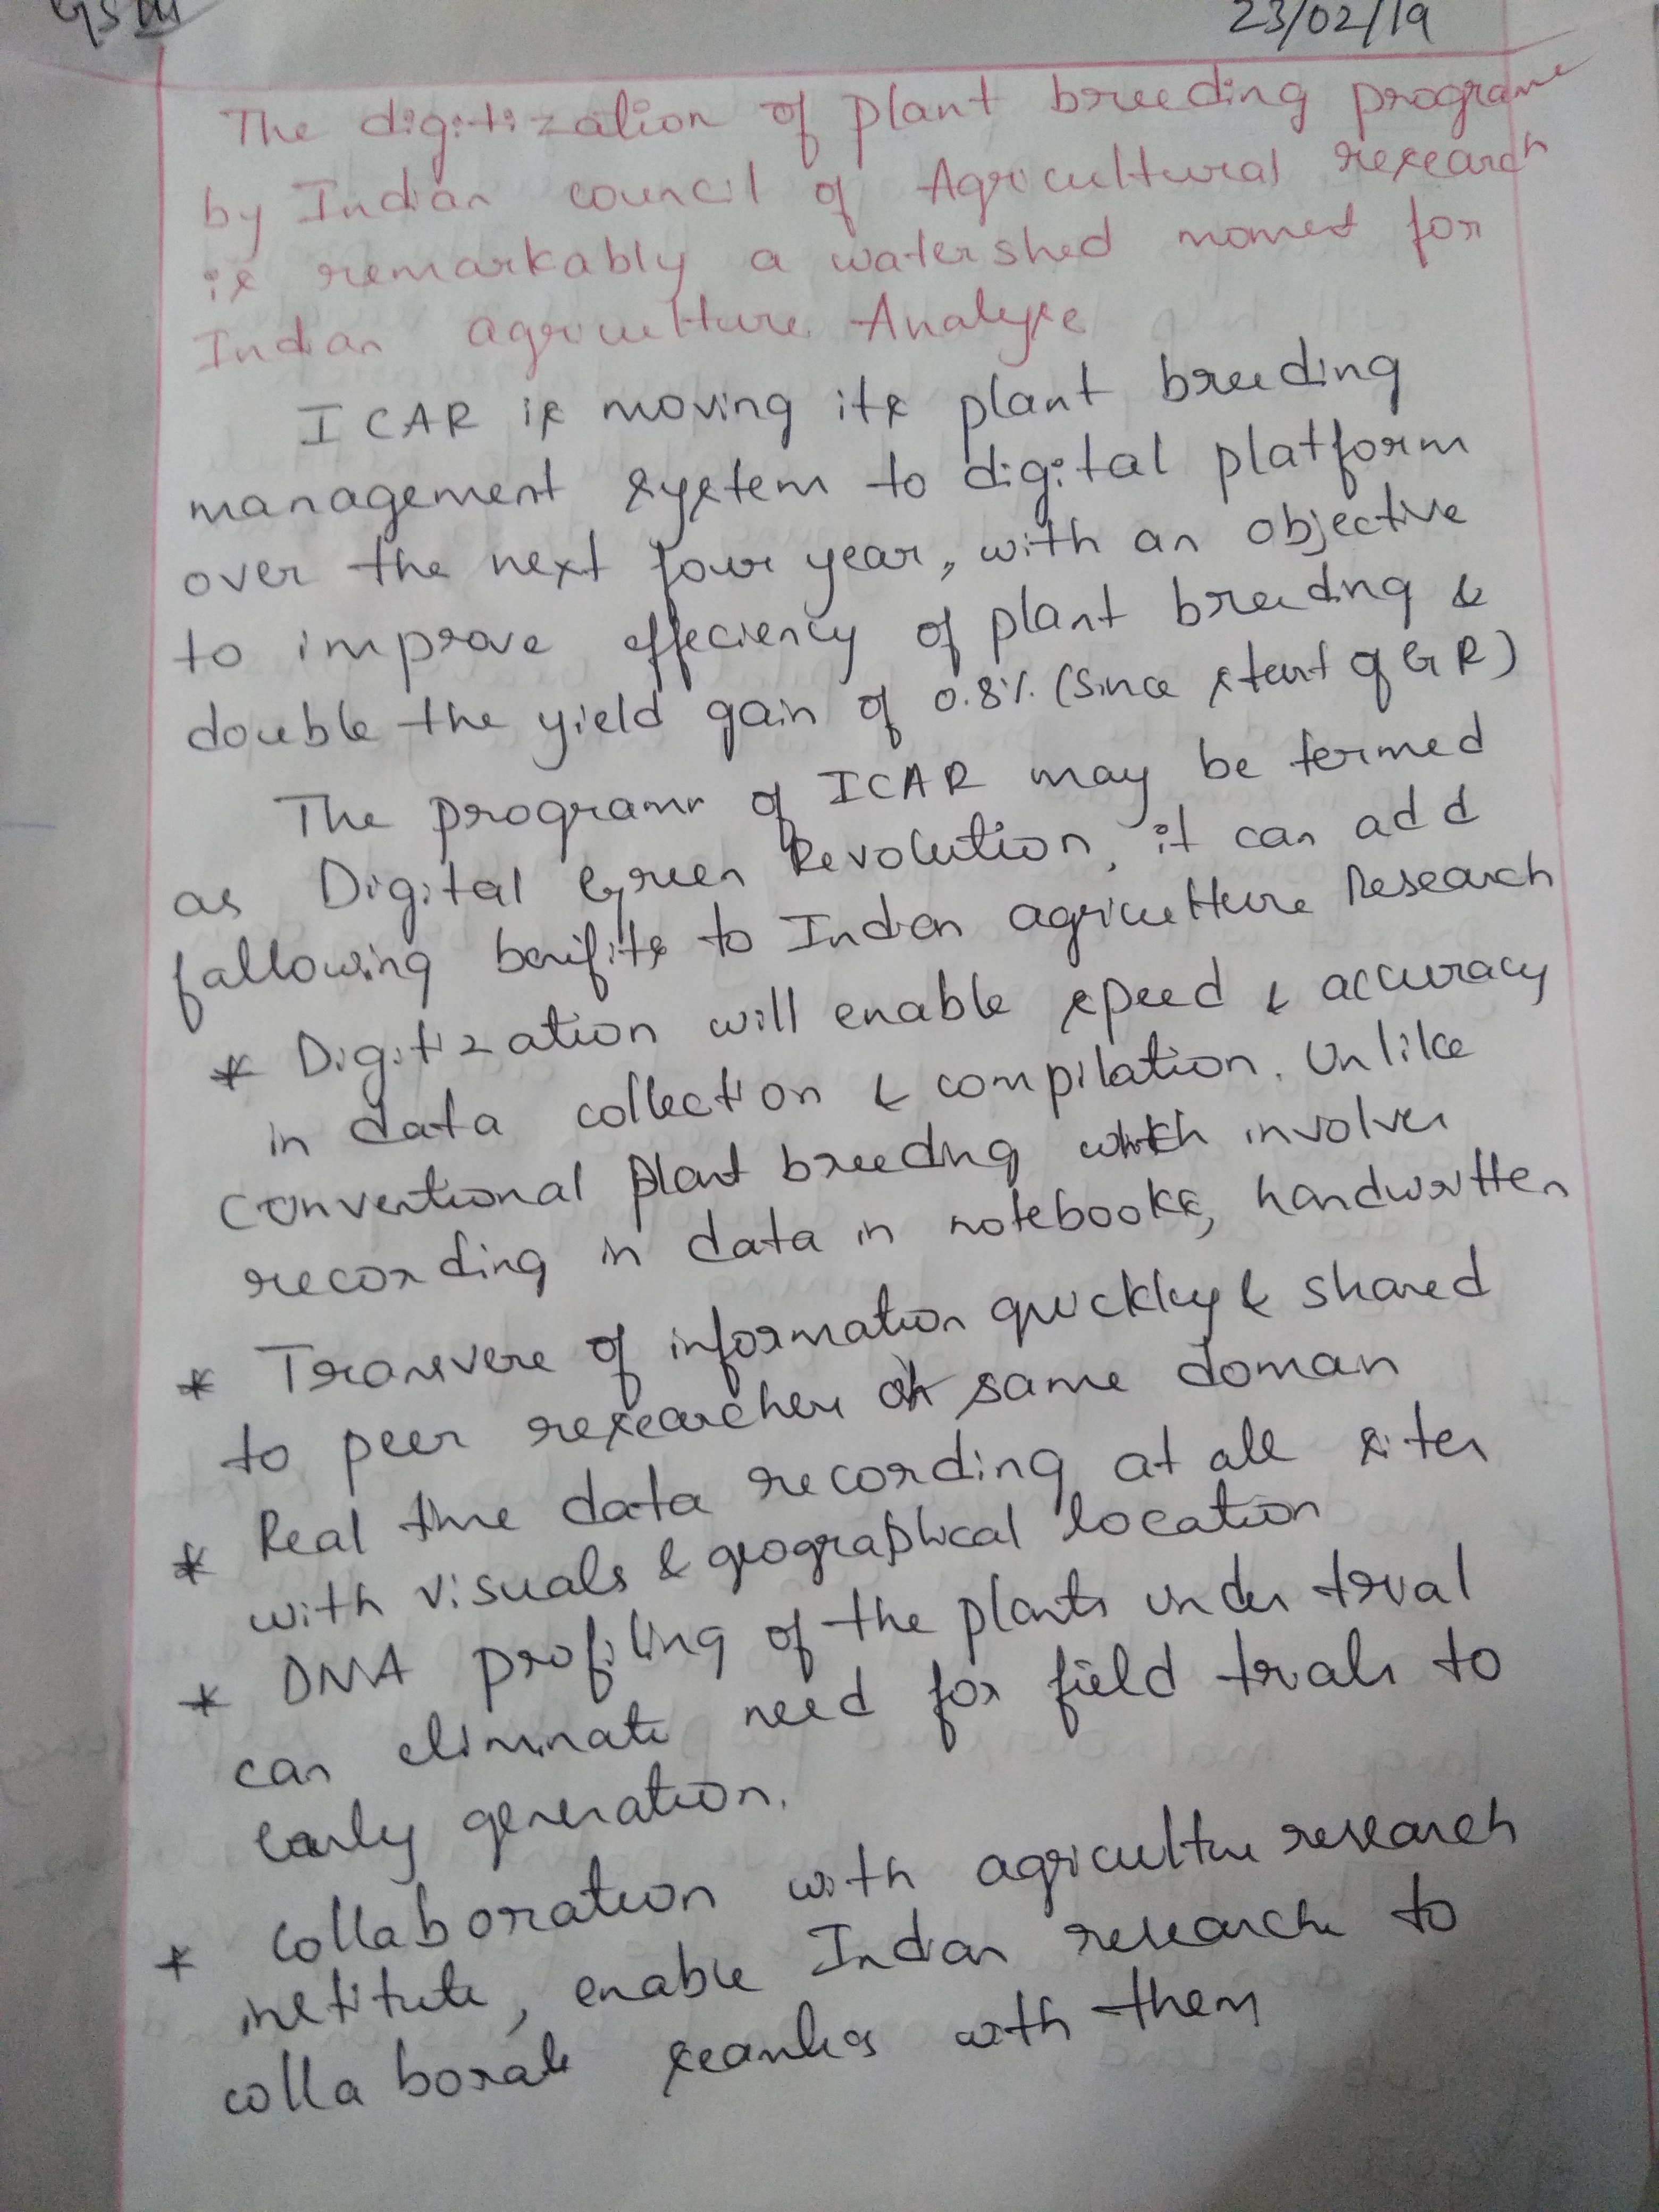 GS III
23/02/19
The digitization of plant breeding programe
by Indian council of Agricultural research
is remarkably a watershed moment for
Indian agriculture. Analyse
ICAR is moving its plant breeding
management system to digital platform
over the next four year, with an objective
to improve effeciency of plant breeding &
double the yield gain of 0.8% (since start of GR)
The programe of ICAR may be termed
as Digital Green Revolution, it can add
fallowing benifits to Indian agriculture Research
* Digitization will enable speed & accuracy
in data collection & compilation. Unlike
conventional plant breeding which involves
recording in data in notebooks, handwritten
* Transvere of information quickley & shared
to peer researchers same doman
* Real time data recording at all sites
with visuals & geographical location
* DNA profiling of the plants under trial
can eliminate need for field trials to
early generation.
* Collaboration with agriculture research
institute, enable Indian research to
collaborate with them